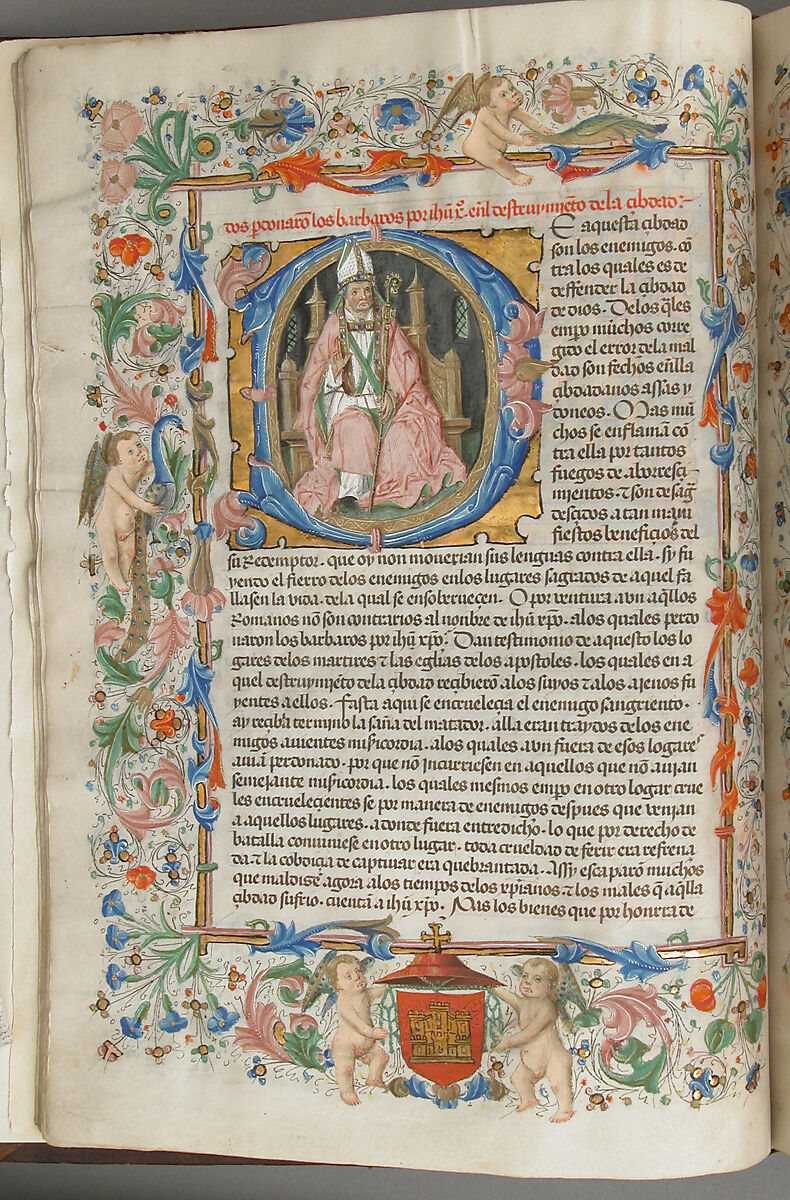 dos perdonarõ los barbaros por ihũ xº. en̄l destruymiẽto dela çibdad:~
E aquesta çibdad
son los enemigos. cõ
tra los quales es de
deffender la çibdad
de dios. Delos q̃les
empo muchos corre
gido el error dela mal
dad son fechos enlla
çibdadanos assas y
doneos. Mas mu
chos se enflamã cõ
tra ella por tantos
fuegos de aborresçi
mientos. ⁊ son desag̃
desçidos a tan mani
fiestos benefiçios del
su Redemptor. que oy non mouerian sus lenguas contra ella. sy fu
yendo el fierro delos enemigos enlos lugares sagrados de aquel fa
llasen la vida. dela qual se ensoberueçen. O por ventura avn aq̃llos
Romanos nõ son contrarios al nonbre de ihũ xp̃o. alos quales perdo
naron los barbaros por ihũ xp̃o. Dan testimonio de aquesto los lo
gares delos martires ⁊ las eglias delos apostoles. los quales en a
quel destruymiẽto dela çibdad reçibierõ alos suyos ⁊ alos ajenos fu
yentes a ellos. Fasta aqui se encruelecia el enemigo sangriento.
ay reçibia termino la saña del matador. alla eran traydos delos ene
migos auientes misicordia. alos quales avn fuera de esos logares
auiã perdonado. por que nõ incurriesen en aquellos que nõ auian
semejante misicordia. los quales mesmos empo en otro logar crue
les encrueleçientes se por manera de enemigos despues que venian
a aquellos lugares. a donde fuera entredicho. lo que por derecho de
batalla conuiniese en otro lugar. toda crueldad de ferir era refrena
da. ⁊ la cobdiçia de captiuar era quebrantada. Assy escaparõ muchos
que maldisẽ agora alos tiempos delos xp̃ianos ⁊ los males q̃ aq̃lla
çibdad sufrio. cuentã a ihũ xp̃o. Mas los bienes que por honrra de